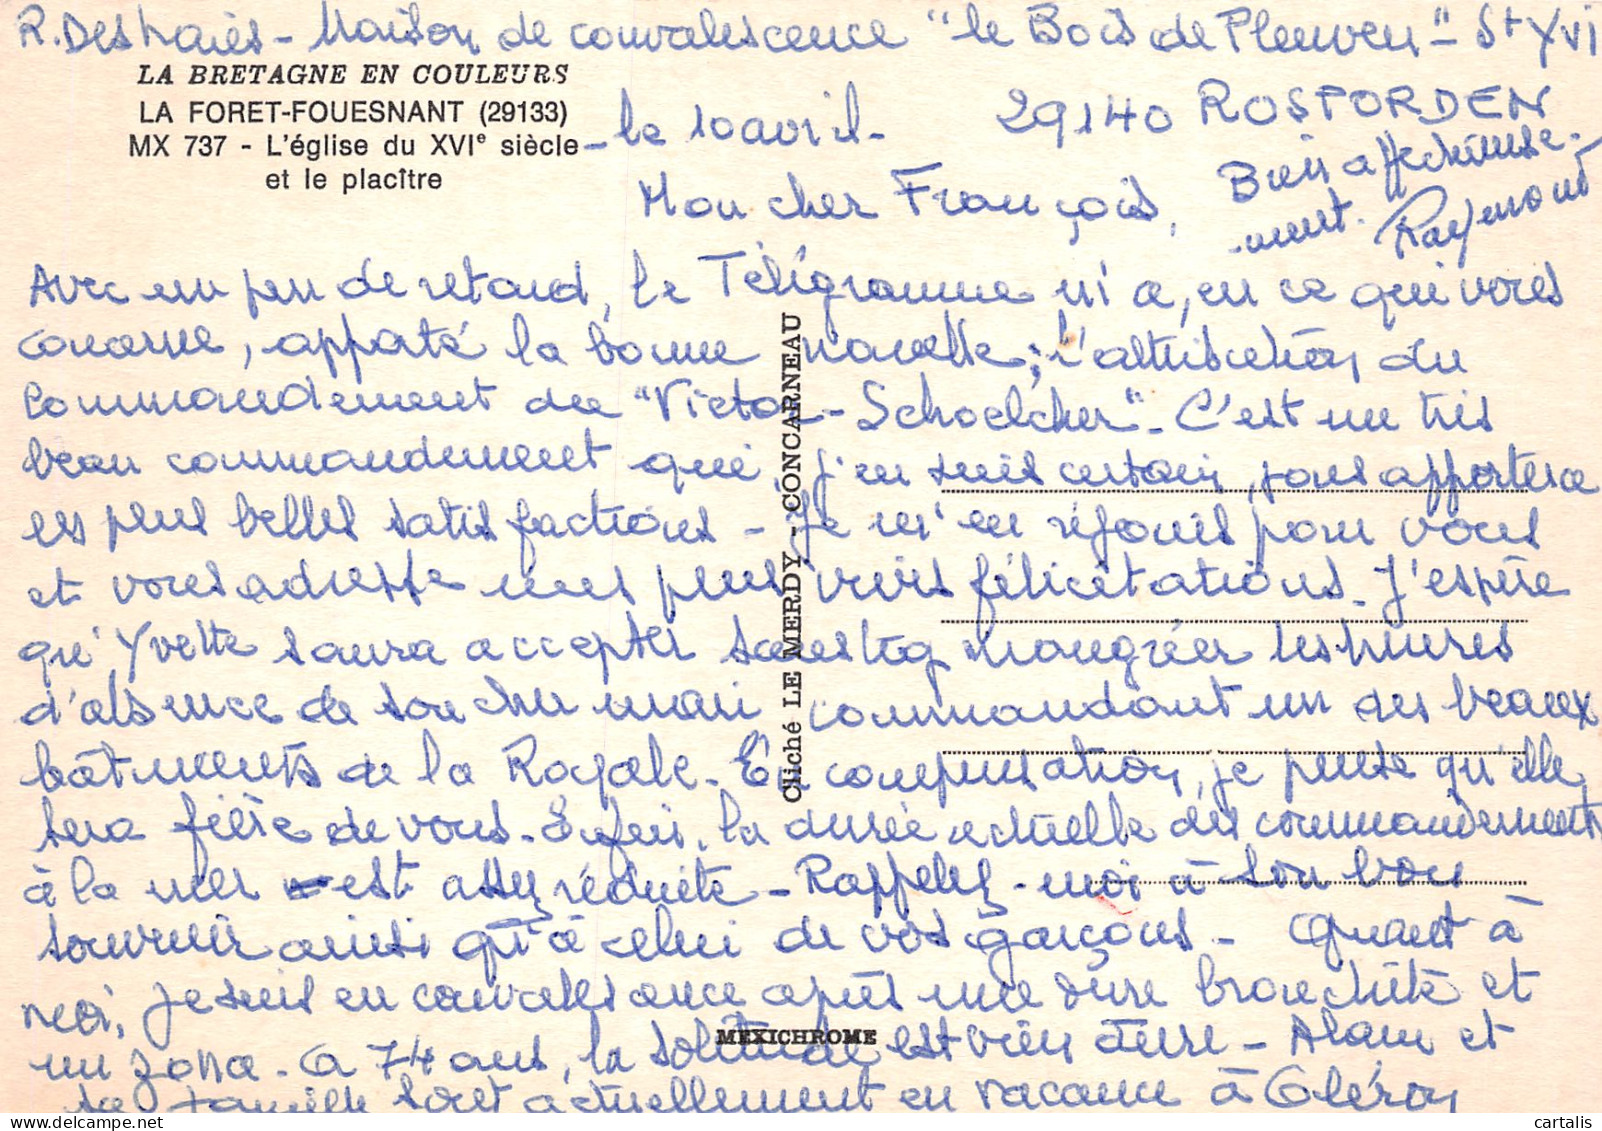 R. Deshaies - Maison de convalescence "le Bois de Pleuven" - St Yvi
LA BRETAGNE EN COULEURS
LA FORET-FOUESNANT (29133)
MX 737 - L'église du XVIe siècle
et le placître
- le 10 avril -
29140 ROSPORDEN
Mon cher François,
Bien affectueuse-
ment.
Raymond
Avec un peu de retard, le Télégramme m'a, en ce qui vous
concerne, apporté la bonne nouvelle; l'attribution du
Commandement du "Victor-Schoelcher" - C'est un très
beau commandement qui, j'en suis certain, vous apportera
les plus belles satisfactions - Je m'en réjouis pour vous
et vous adresse mes plus vives félicitations - J'espère
qu'Yvette saura accepter sans maugréer les heures
d'absence de son cher mari commandant un des beaux
bâtiments de la Royale - En compensation, je pense qu'elle
sera fière de vous - Enfin, la durée actuelle des commandements
à la mer est assez réduite - Rappelez-moi à son bon
souvenir ainsi qu'à celui de vos garçons - Quant à
moi, je suis en convalescence après une dure bronchite et
un zona - à 74 ans, la solitude est bien dure - Alain et
sa famille sont actuellement en vacance à Oléron
Cliché LE MERDY - CONCARNEAU
MEXICHROME
cartalis